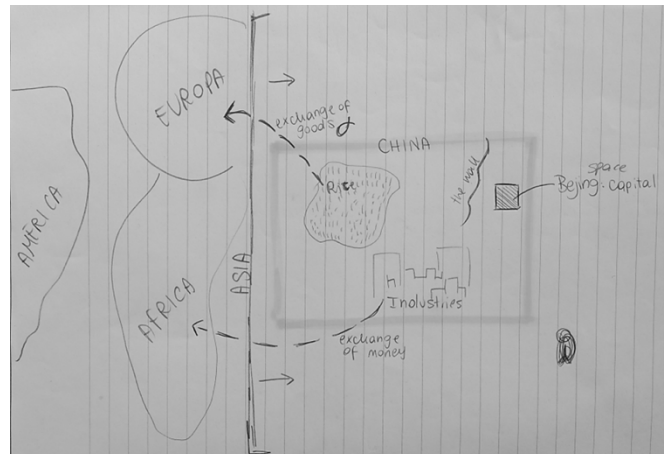 AMERICA
EUROPA
AFRICA
ASIA
exchange of
goods
CHINA
Rice
the wall
space
Bejing-capital
Industries
exchange
of money